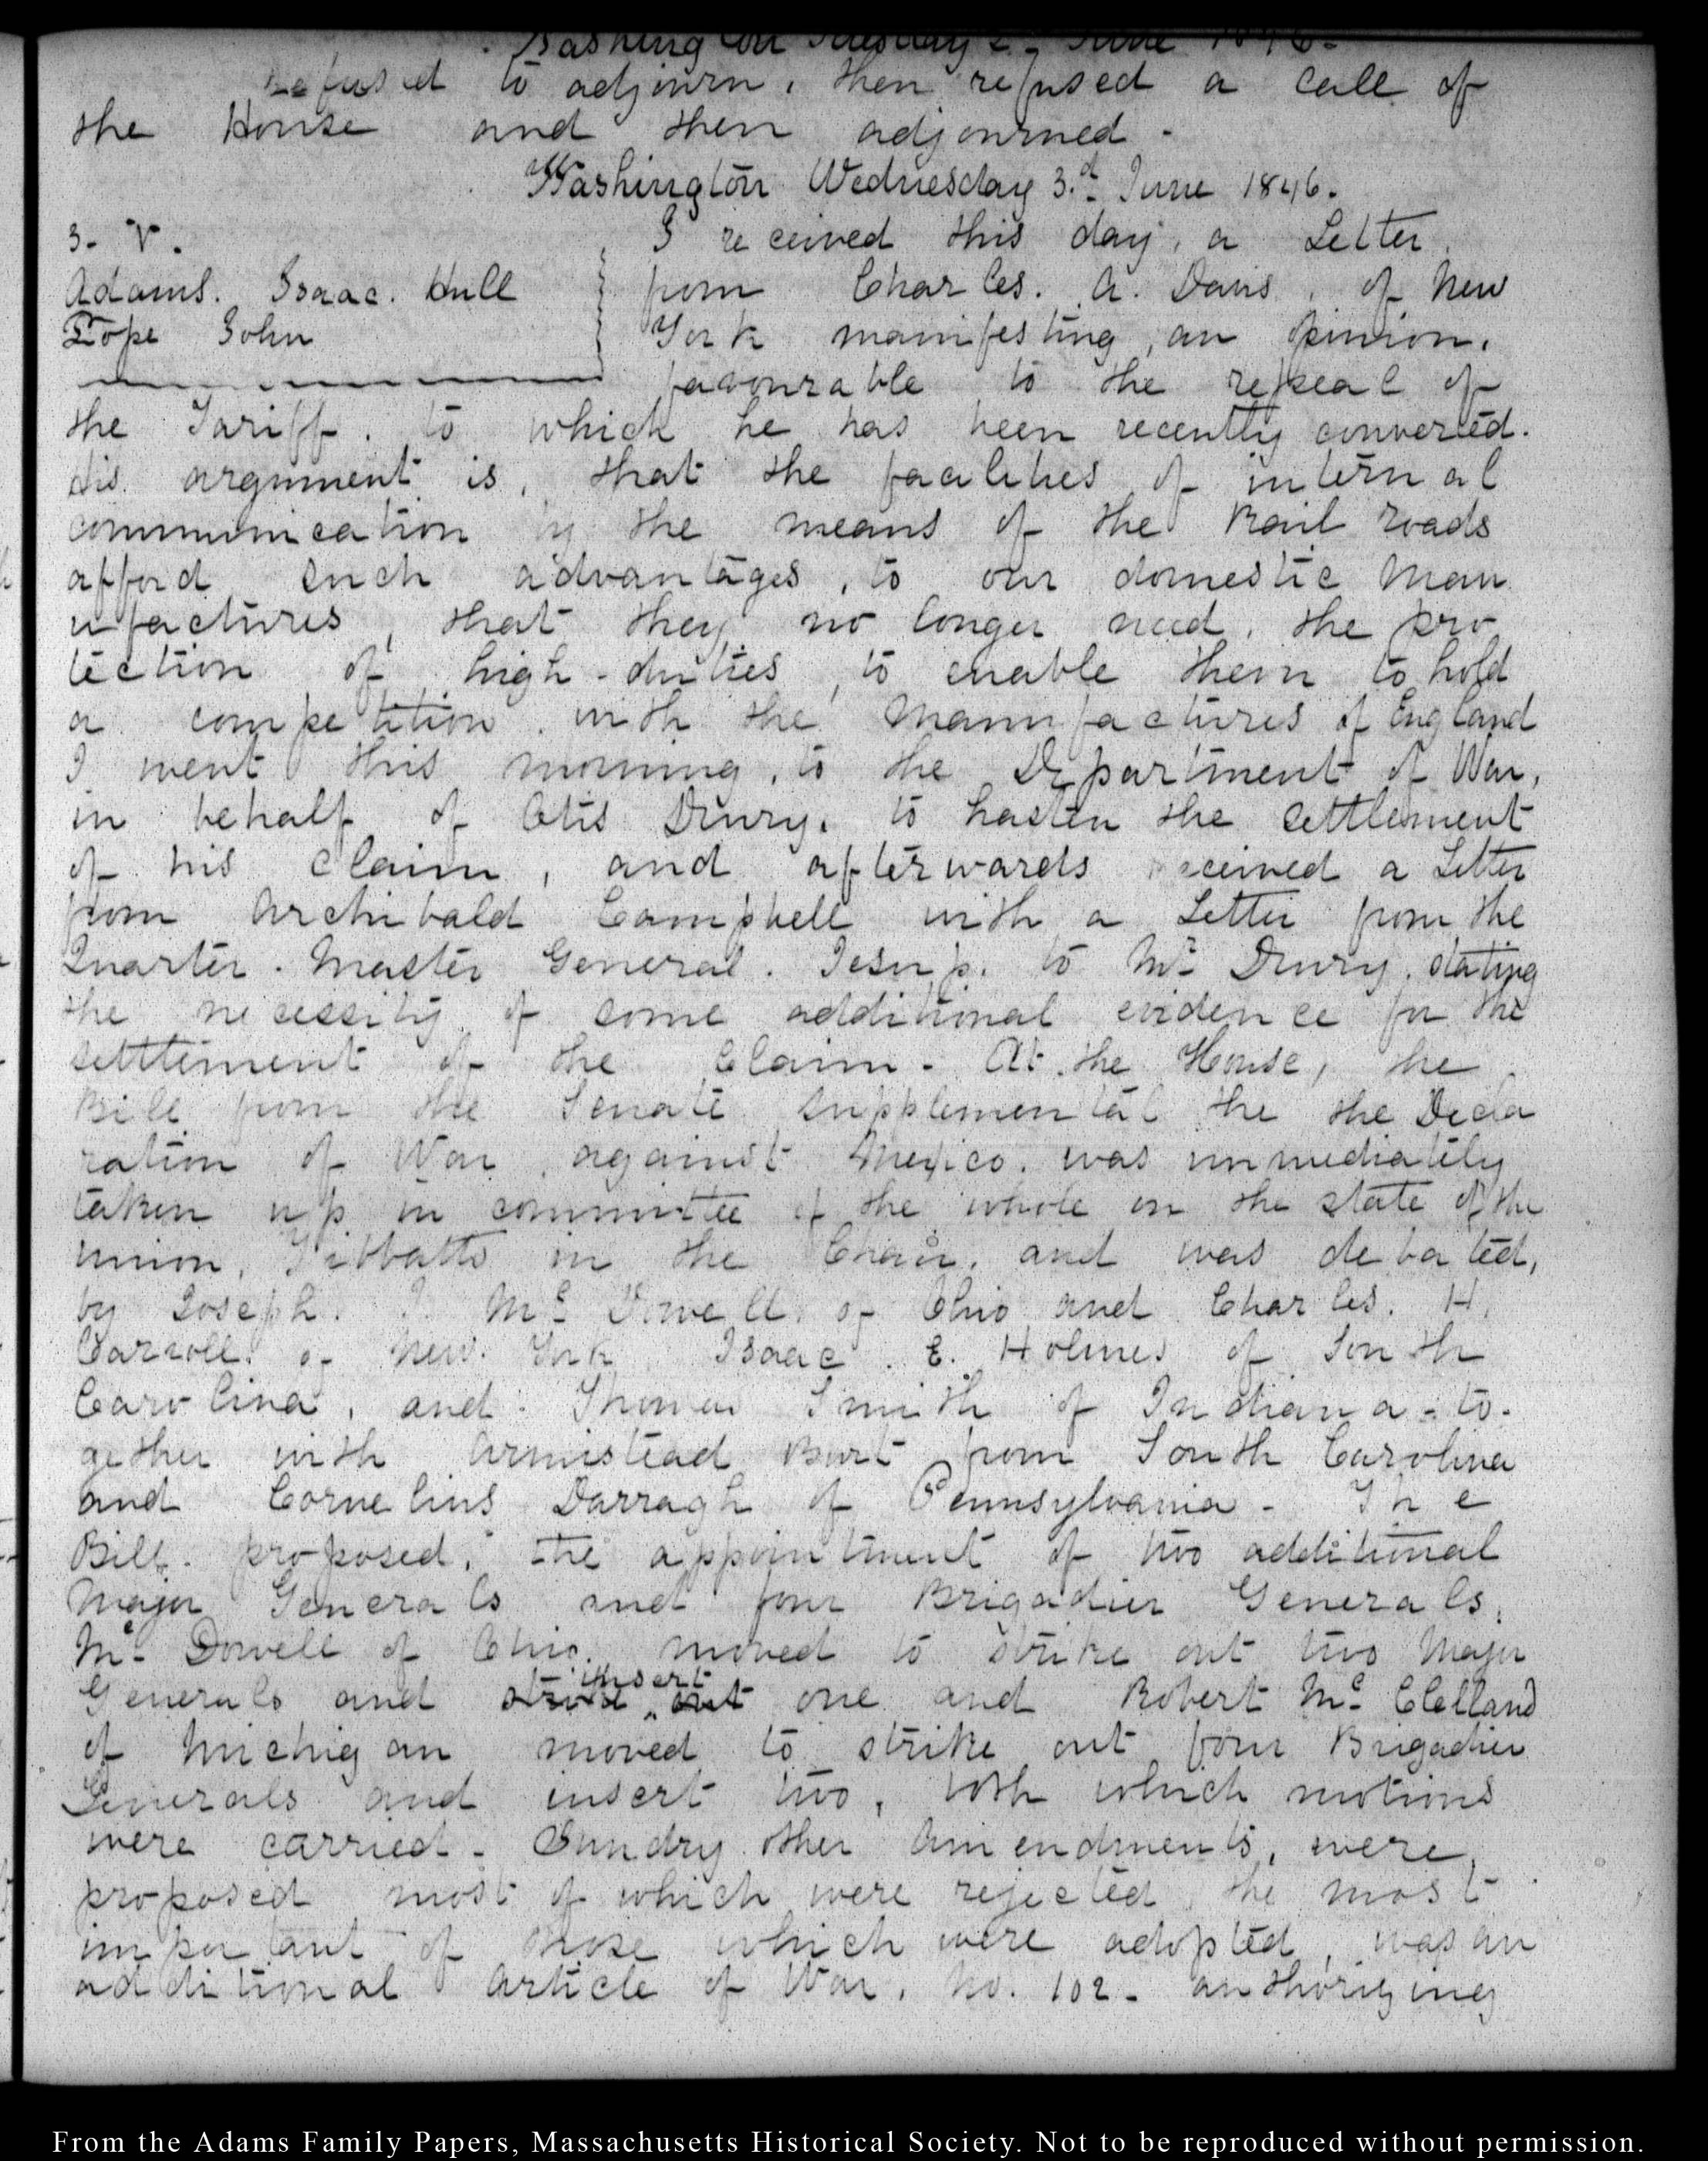 Washington Tuesday 2. June 1846.
refused to adjourn, then refused a call of
the House and then adjourned -
Washington Wednesday 3.d June 1846.
3. V.
Adams. Isaac. Hull
Pope John
I received this day, a Letter
from Charles. A. Davis, of New
York manifesting, an opinion,
favourable to the repeal of
the Tariff. to which he has been recently converted.
His argument is, that the facilities of internal
communication by the means of the Rail roads
afford such advantages, to our domestic Man
ufactures, that they no longer need, the pro
tection of high-duties, to enable them to hold
a competition with the Manufactures of England
I went this morning, to the Department of War,
in behalf of Otis Drury. to hasten the settlement
of his claim, and afterwards received a Letter
from Archibald Campbell with a Letter from the
Quarter. Master General. Jesup. to Mr Drury, stating
the necessity of some additional evidence for the
settlement of the Claim - At the House, the
Bill from the Senate supplemental the the Decla
ration of War against Mexico. was immediately
taken up in committee of the whole on the state of the
union, Tibbatts in the Chair. and was debated,
by Joseph. J. Mc Dowell. of Ohio and Charles. H.
Carroll. of New. York Isaac. E. Holmes of South
Carolina, and Thomas Smith of Indiana - to-
gether with Armistead Burt from South Carolina
and Cornelius Darragh of Pennsylvania - The
Bill. proposed, the appointment of two additional
Major Generals and four Brigadier Generals,
Mc Dowell of Ohio, moved to strike out two Major
Generals and strike out insert one and Robert Mc Clelland
of Michigan moved to strike out four Brigadier
Generals and insert two, both which motions
were carried - Sundry other Amendments, were,
proposed most of which were rejected, the most
important of those which were adopted, was an
additional Article of War. No. 102 - authorizing
From the Adams Family Papers, Massachusetts Historical Society. Not to be reproduced without permission.